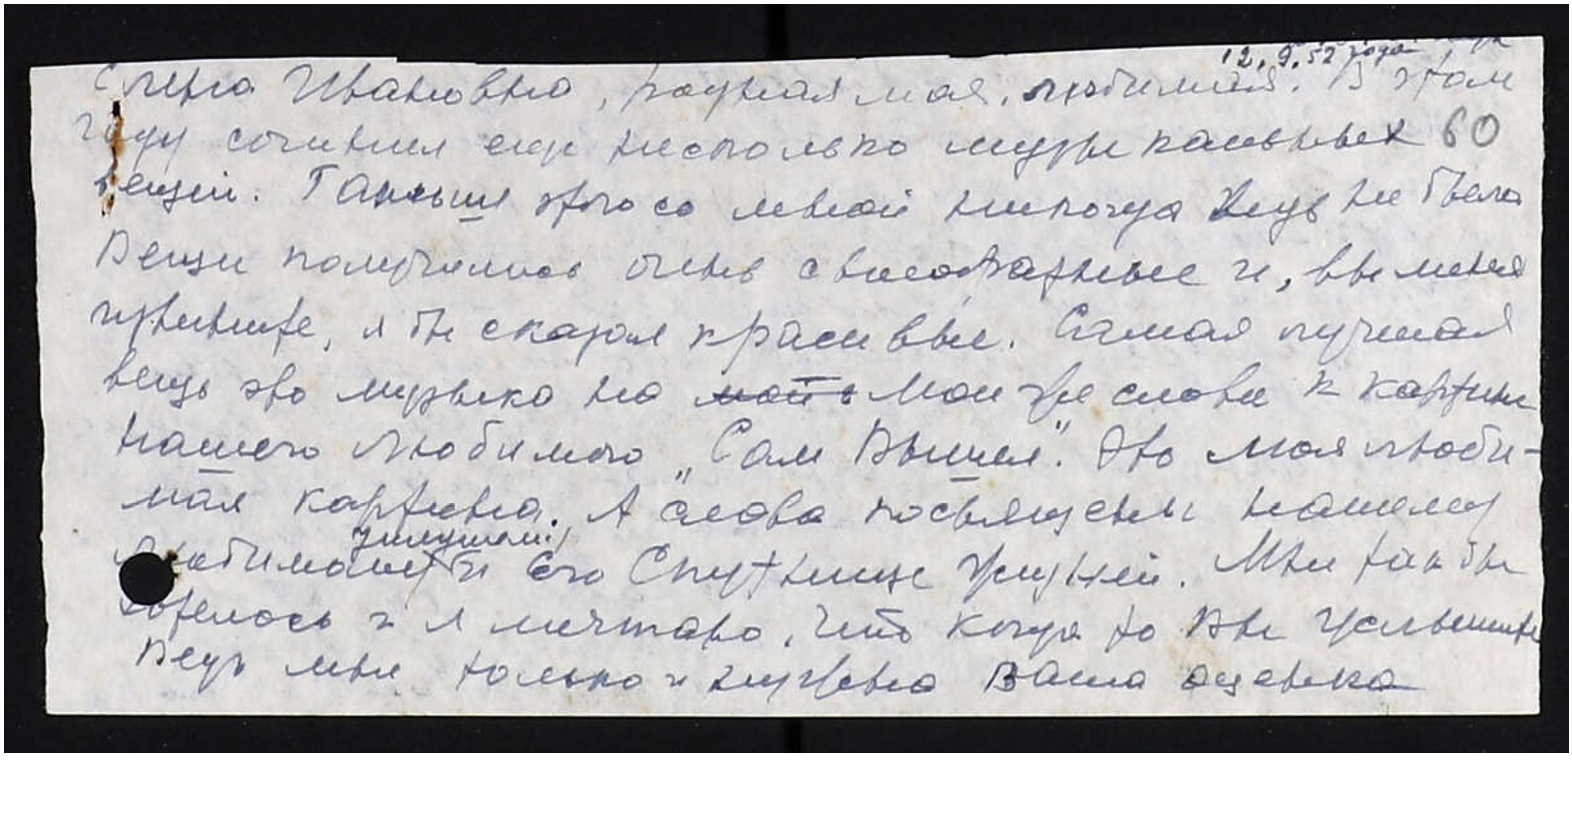 12.9.52 года
Елена Ивановна, родная моя, любимая. В этом
году сочинил еще несколько музыкальных 60
вещей. Раньше этого со мной никогда ведь не было
Вещи получились очень своеобразные и, вы меня
извините, я бы сказал красивые. Самая лучшая
вещь это музыка на мои же слова к картине
нашего любимого „Сам Вышел". Это моя люби-
мая картина. А слова посвящены нашему
любимому и Его Спутнице Жизни. Мне так бы
хотелось и я мечтаю, что когда то Вы услышите
Ведь мне только и нужна Ваша оценка